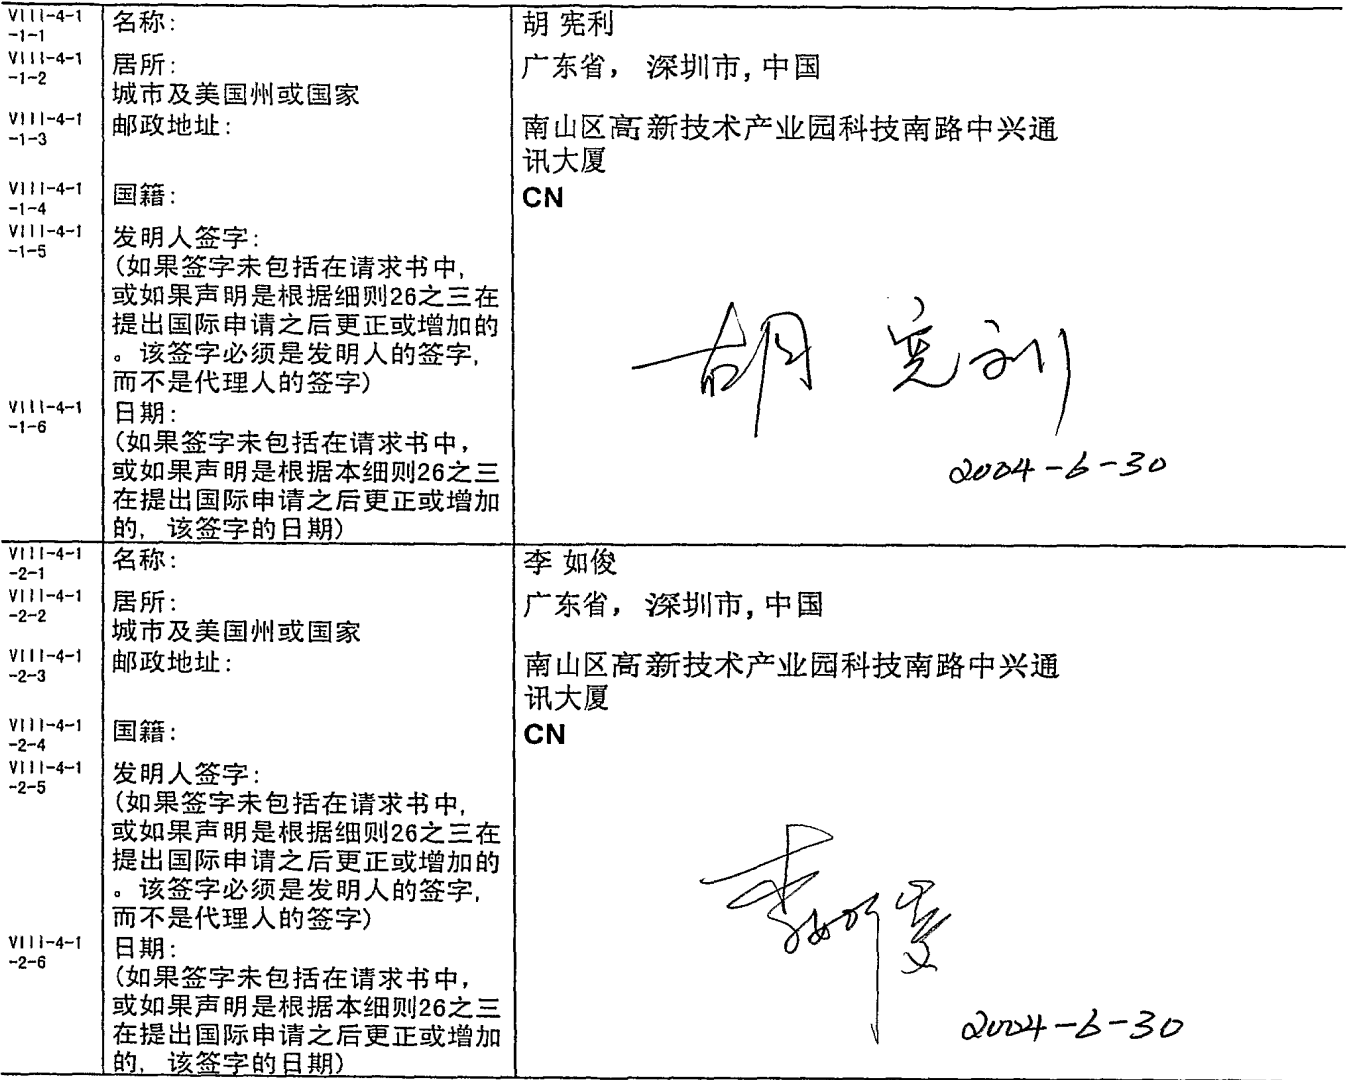 VIII-4-1
-1-1
名称:
胡 宪利
VIII-4-1
-1-2
居所:
城市及美国州或国家
广东省, 深圳市, 中国
VIII-4-1
-1-3
邮政地址:
南山区高新技术产业园科技南路中兴通
讯大厦
VIII-4-1
-1-4
国籍:
CN
VIII-4-1
-1-5
发明人签字:
(如果签字未包括在请求书中,
或如果声明是根据细则26之三在
提出国际申请之后更正或增加的
。该签字必须是发明人的签字,
而不是代理人的签字)
胡 宪利
VIII-4-1
-1-6
日期:
(如果签字未包括在请求书中,
或如果声明是根据本细则26之三
在提出国际申请之后更正或增加
的, 该签字的日期)
2004-6-30
VIII-4-1
-2-1
名称:
李 如俊
VIII-4-1
-2-2
居所:
城市及美国州或国家
广东省, 深圳市, 中国
VIII-4-1
-2-3
邮政地址:
南山区高新技术产业园科技南路中兴通
讯大厦
VIII-4-1
-2-4
国籍:
CN
VIII-4-1
-2-5
发明人签字:
(如果签字未包括在请求书中,
或如果声明是根据细则26之三在
提出国际申请之后更正或增加的
。该签字必须是发明人的签字,
而不是代理人的签字)
李如俊
VIII-4-1
-2-6
日期:
(如果签字未包括在请求书中,
或如果声明是根据本细则26之三
在提出国际申请之后更正或增加
的, 该签字的日期)
2004-6-30